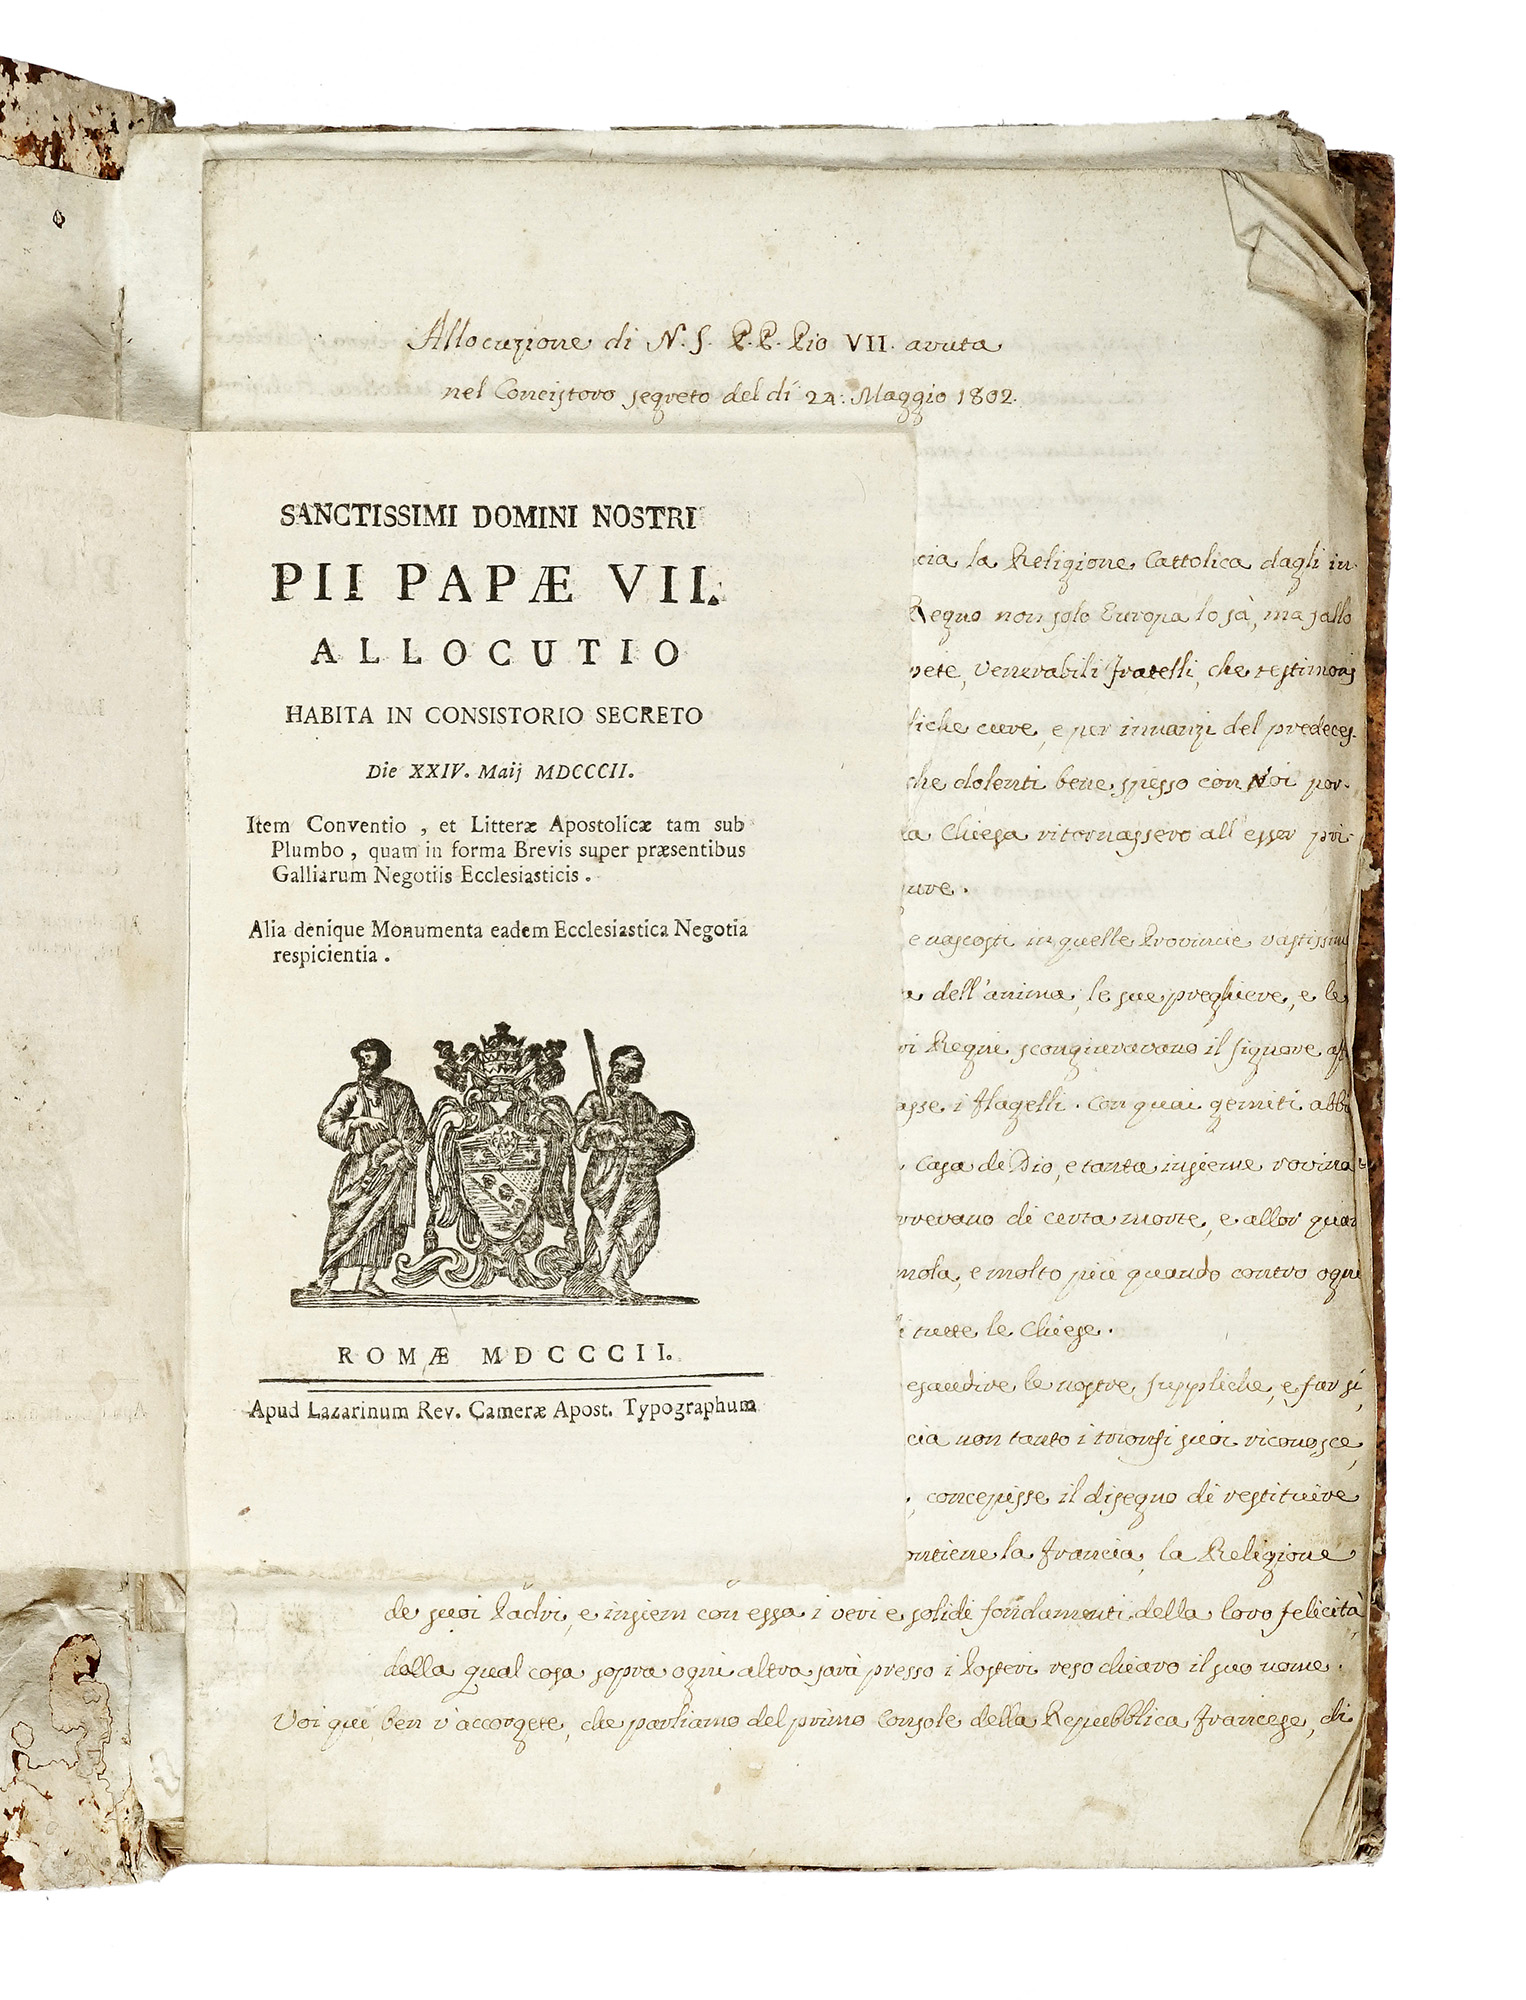 Allocuzione di N. S. P. P. Pio VII. avuta
nel Concistoro segreto del dì 24. Maggio 1802.
SANCTISSIMI DOMINI NOSTRI
PII PAPÆ VII.
ALLOCUTIO
HABITA IN CONSISTORIO SECRETO
Die XXIV. Maij MDCCCII.
Item Conventio , et Litteræ Apostolicæ tam sub
Plumbo , quam in forma Brevis super præsentibus
Galliarum Negotiis Ecclesiasticis .
Alia denique Monumenta eadem Ecclesiastica Negotia
respicientia .
ROMÆ MDCCCII.
Apud Lazarinum Rev. Cameræ Apost. Typographum
cia la Religione Cattolica dagli in-
Regno non solo Europa lo sà, ma sallo
pete, Venerabili Fratelli, che testimonj
fiche cure, e per innanzi del predeces-
che dolenti bene spesso con Noi por-
la Chiesa ritornassero all'esser pri-
e nascosti in quelle Provincie vastissime
a dell'anima, le sue preghiere, e le
vi Regni scongiuravano il Signore
asse i flagelli. Con quai gemiti
Casa di Dio, e tanta insieme rovina
rrevano di certa morte, e allor quan
mola, e molto più quando contro ogni
i tutte le Chiese.
esaudire le nostre suppliche, e far sì,
cia non tanto i trionfi suoi riconosce,
, concepisse il disegno di restituire
ontiene la Francia, la Religione
de suoi Padri, e insiem con essa i veri e solidi fondamenti della loro felicità,
dalla qual cosa sopra ogni altra sarà presso i Posteri reso chiaro il suo nome.
Voi quì ben v'accorgete, che parliamo del primo Console della Repubblica Francese, di